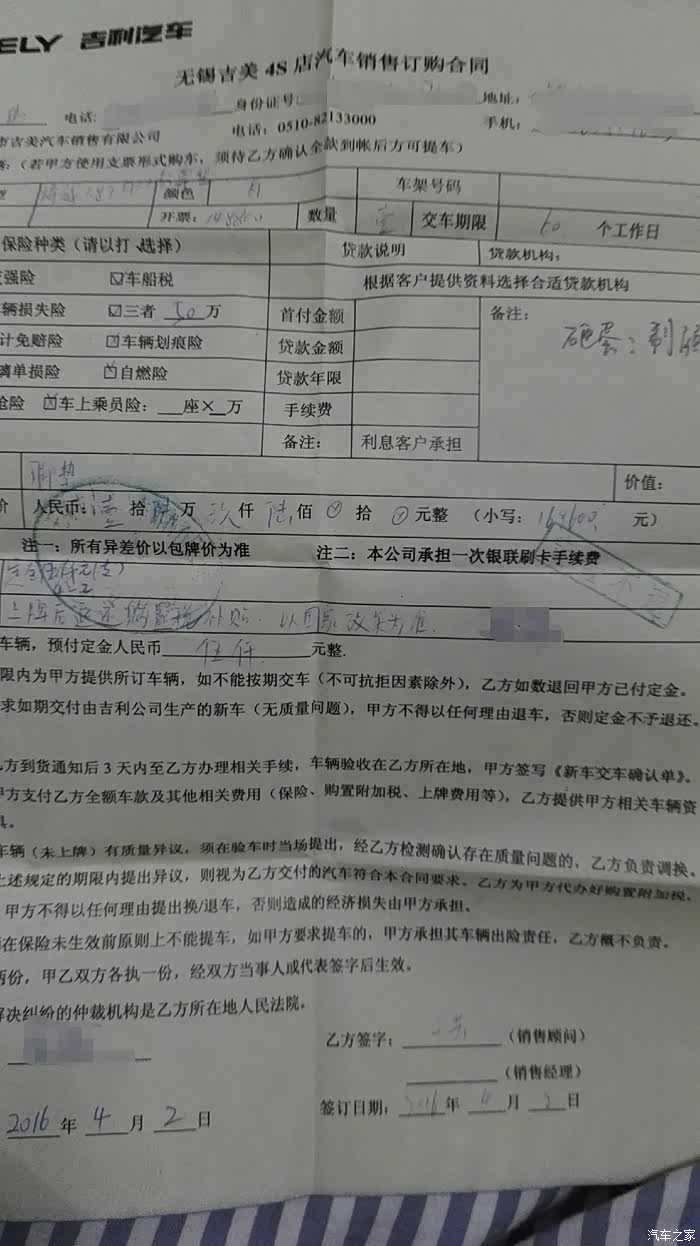 ELY 吉利汽车
无锡吉美 4S 店汽车销售订购合同
电话: 身份证号: 地址:
市吉美汽车销售有限公司 电话: 0510-82133000 手机:
(若甲方使用支票形式购车,须待乙方确认全款到帐后方可提车)
型 颜色 车架号码
开票: 数量 壹 交车期限 60 个工作日
保险种类(请以打 √选择) 贷款说明 贷款机构:
强险 ☑车船税 根据客户提供资料选择合适贷款机构
辆损失险 ☑三者 50 万 首付金额 备注:
计免赔险 ☑车辆划痕险 贷款金额 砸蛋:
璃单损险 自燃险 贷款年限
抢险 车上乘员险: 座× 万 手续费
备注: 利息客户承担
脚垫 价值:
价 人民币: 壹 拾 陆 万 仟 陆 佰 拾 元整 (小写: 164600 元)
注一:所有异差价以包牌价为准 注二:本公司承担一次银联刷卡手续费
上牌后 补贴.以国家政策为准.
车辆,预付定金人民币 伍仟 元整.
限内为甲方提供所订车辆,如不能按期交车(不可抗拒因素除外),乙方如数退回甲方已付定金。
求如期交付由吉利公司生产的新车(无质量问题),甲方不得以任何理由退车,否则定金不予退还。
乙方到货通知后 3 天内至乙方办理相关手续,车辆验收在乙方所在地,甲方签写《新车交车确认单》。
甲方支付乙方全额车款及其他相关费用(保险、购置附加税、上牌费用等),乙方提供甲方相关车辆资
具。
车辆(未上牌)有质量异议,须在验车时当场提出,经乙方检测确认存在质量问题的,乙方负责调换。
上述规定的期限内提出异议,则视为乙方交付的汽车符合本合同要求。乙方为甲方代办好购置附加税、
甲方不得以任何理由提出换/退车,否则造成的经济损失由甲方承担。
在保险未生效前原则上不能提车,如甲方要求提车的,甲方承担其车辆出险责任,乙方概不负责。
两份,甲乙双方各执一份,经双方当事人或代表签字后生效。
解决纠纷的仲裁机构是乙方所在地人民法院。
乙方签字: (销售顾问)
(销售经理)
2016 年 4 月 2 日 签订日期: 2016 年 4 月 2 日
汽车之家